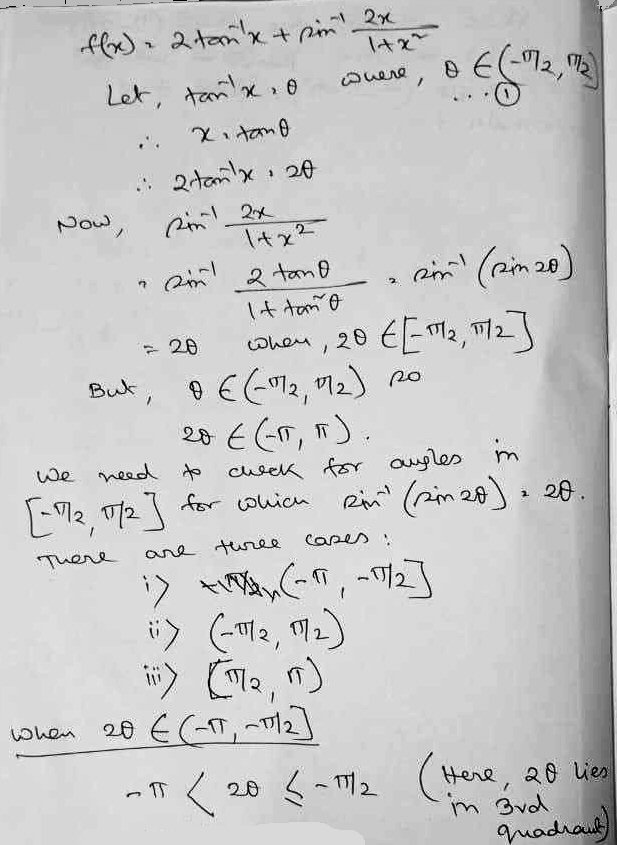 f(x) = 2tan⁻¹x + sin⁻¹ 2x/(1+x²)
Let, tan⁻¹x = θ where, θ ∈ (-π/2, π/2)
...①
∴ x = tanθ
∴ 2tan⁻¹x = 2θ
Now, sin⁻¹ 2x/(1+x²)
= sin⁻¹ 2 tanθ/(1+tan²θ) = sin⁻¹ (sin 2θ)
= 2θ when, 2θ ∈ [-π/2, π/2]
But, θ ∈ (-π/2, π/2) so
2θ ∈ (-π, π).
We need to check for angles in
[-π/2, π/2] for which sin⁻¹ (sin 2θ) = 2θ.
There are three cases:
i) (-π, -π/2]
ii) (-π/2, π/2)
iii) [π/2, π)
When 2θ ∈ (-π, -π/2]
-π < 2θ ≤ -π/2 (Here, 2θ lies
in 3rd
quadrant)